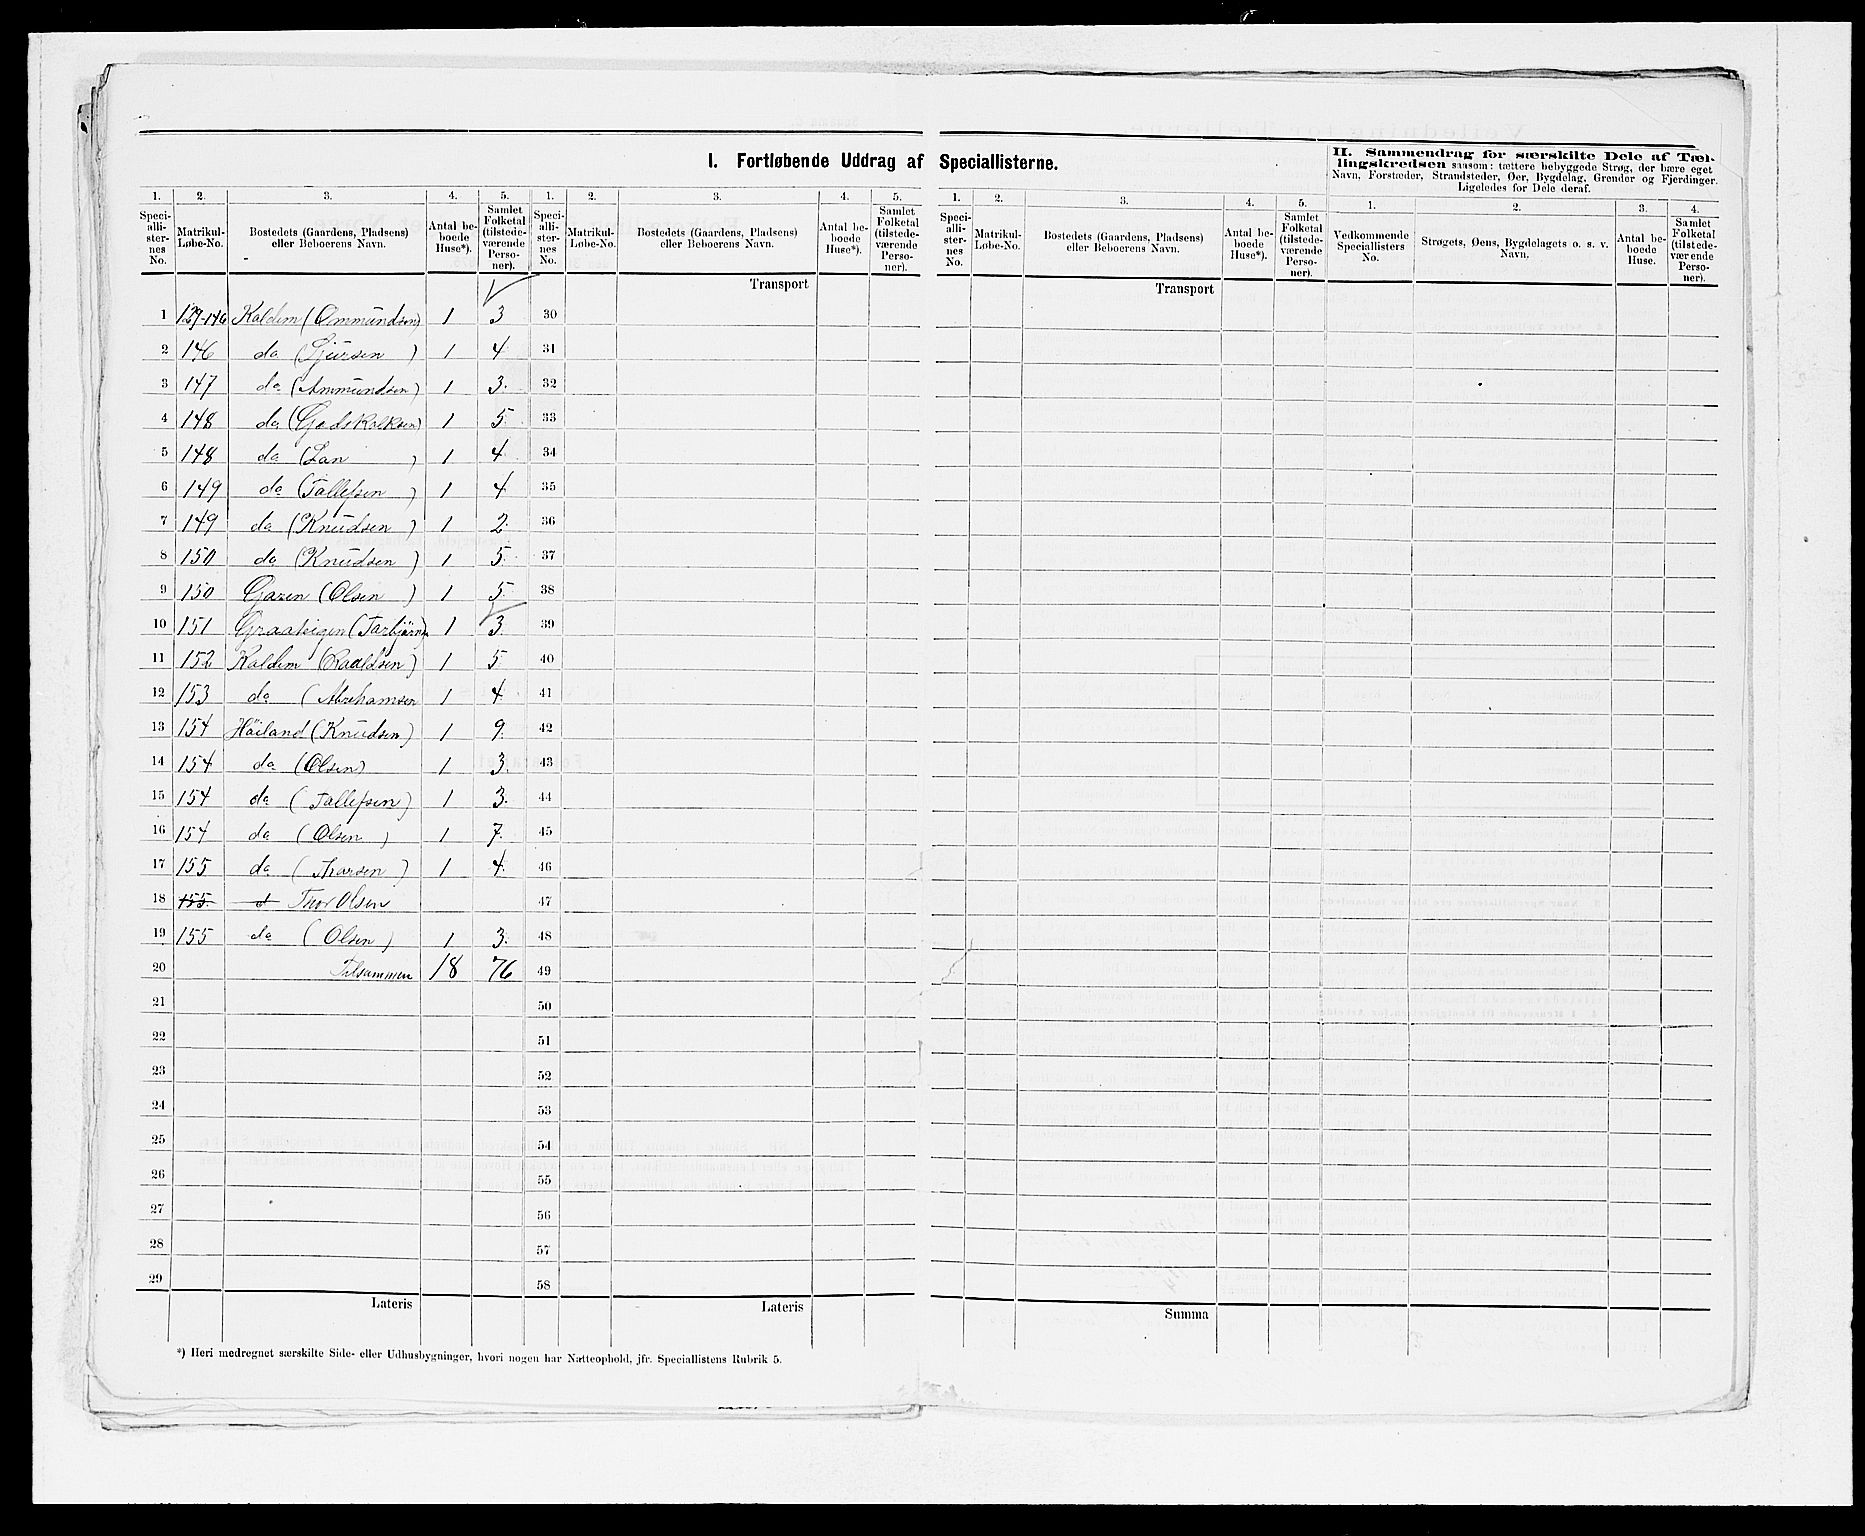 I. Fortløbende Uddrag af Speciallisterne.
II. Sammendrag for særskilte Dele af Tæl-
lingskredsen saasom: tættere bebyggede Strøg, der bære eget
Navn, Forstæder, Strandsteder, Øer, Bygdelag, Grender og Fjerdinger.
Ligeledes for Dele deraf.
1. 2. 3. 4. 5. 1. 2. 3. 4. 5. 1. 2. 3. 4. 5. 1. 2. 3. 4.
Speci-alli-ster-nes No. Matrikul-Løbe-No. Bostedets (Gaardens, Pladsens) eller Beboerens Navn. Antal be-boede Huse*). Samlet Folketal (tilstede-værende Perso-ner).
Speci-alli-ster-nes No. Matrikul-Løbe-No. Bostedets (Gaardens, Pladsens) eller Beboerens Navn. Antal be-boede Huse*). Samlet Folketal (tilstede-værende Perso-ner).
Speci-alli-ster-nes No. Matrikul-Løbe-No. Bostedets (Gaardens, Pladsens) eller Beboerens Navn. Antal be-boede Huse*). Samlet Folketal (tilstede-værende Perso-ner).
Vedkommende Speciallisters No. Strøgets, Øens, Bygdelagets o. s. v. Navn. Antal be-boede Huse. Samlet Folketal (tilstede-værende Perso-ner).
Transport Transport
1 129-146 Kaldem (Ommundsen) 1 3 30
2 146 do (Sjursen) 1 4 31
3 147 do (Ammundsen) 1 3. 32
4 148 do (Godskalksen) 1 5 33
5 148 do (Lan) 1 4 34
6 149 do (Tallefsen) 1 4 35
7 149 do (Knudsen) 1 2. 36
8 150 do (Knudsen) 1 5. 37
9 150 (Olsen) 1 5. 38
10 151 1 3. 39
11 152 Kaldem (Raaldsen) 1 5 40
12 153 do (Abrahamsen 1 4. 41
13 154 Höiland (Knudsen) 1 9. 42
14 154 do (Olsen) 1 3. 43
15 154 do (Tallefsen) 1 3. 44
16 154 do (Olsen) 1 7. 45
17 155 do (Tharsen) 1 4. 46
18 155. d Thor Olsen 47
19 155 do (Olsen) 1 3. 48
20 Tilsammen 18 76 49
21 50
22 51
23 52
24 53
25 54
26 55
27 56
28 57
29 58
Lateris Lateris Summa
*) Heri medregnet særskilte Side- eller Udhusbygninger, hvori nogen har Natteophold, jfr. Speciallistens Rubrik 5.